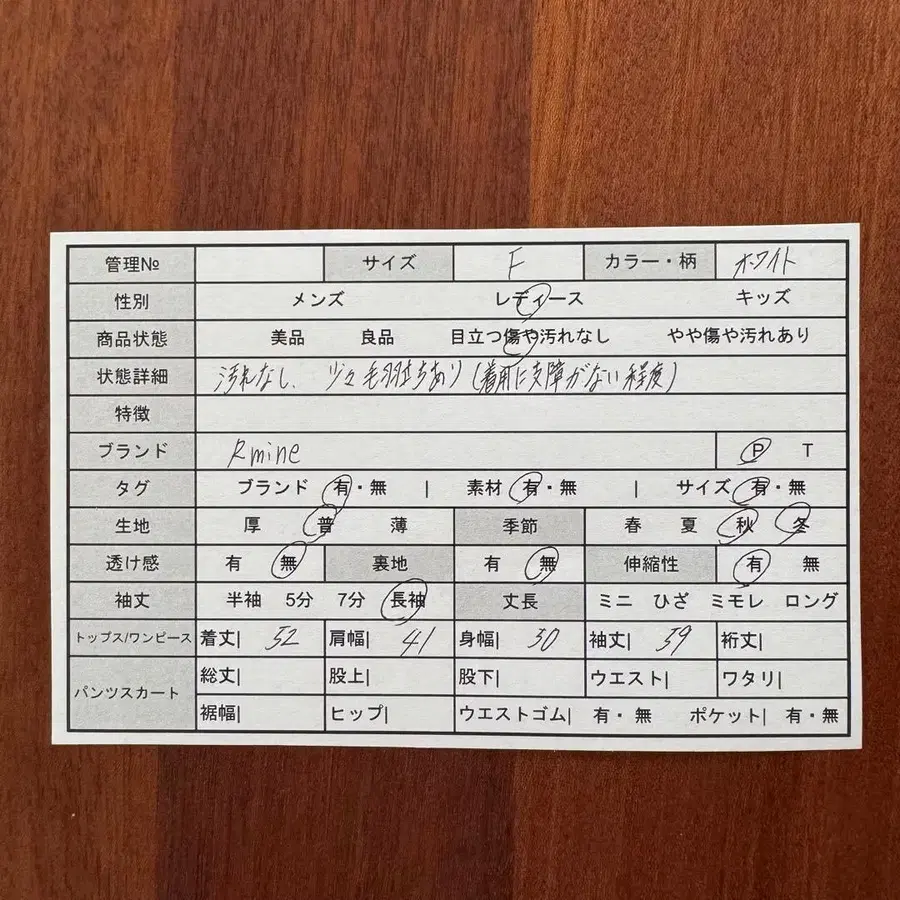 管理№ サイズ F カラー・柄 ホワイト
性別 メンズ レディース キッズ
商品状態 美品 良品 目立つ傷や汚れなし やや傷や汚れあり
状態詳細 汚れなし、少々毛羽立ちあり(着用に支障がない程度)
特徴
ブランド Rmine P T
タグ ブランド 有・無 | 素材 有・無 | サイズ 有・無
生地 厚 普 薄 季節 春 夏 秋 冬
透け感 有 無 裏地 有 無 伸縮性 有 無
袖丈 半袖 5分 7分 長袖 丈長 ミニ ひざ ミモレ ロング
トップス/ワンピース 着丈| 52 肩幅| 41 身幅| 50 袖丈| 59 裄丈|
パンツスカート 総丈| 股上| 股下| ウエスト| ワタリ|
裾幅| ヒップ| ウエストゴム| 有・無 ポケット| 有・無